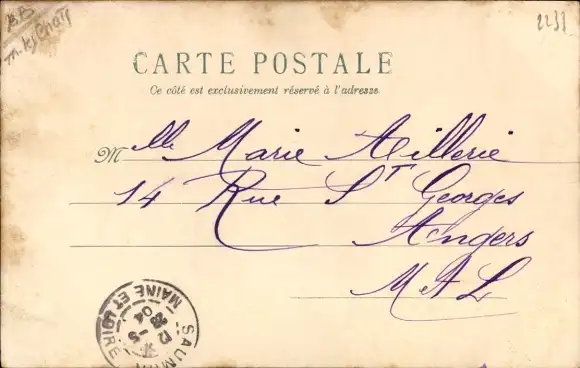 2233
CARTE POSTALE
Ce côté est exclusivement réservé à l'adresse.
Mlle Marie
14 Rue St Georges
Angers
M et L
SAUMUR
MAINE ET LOIRE
12 -5
04